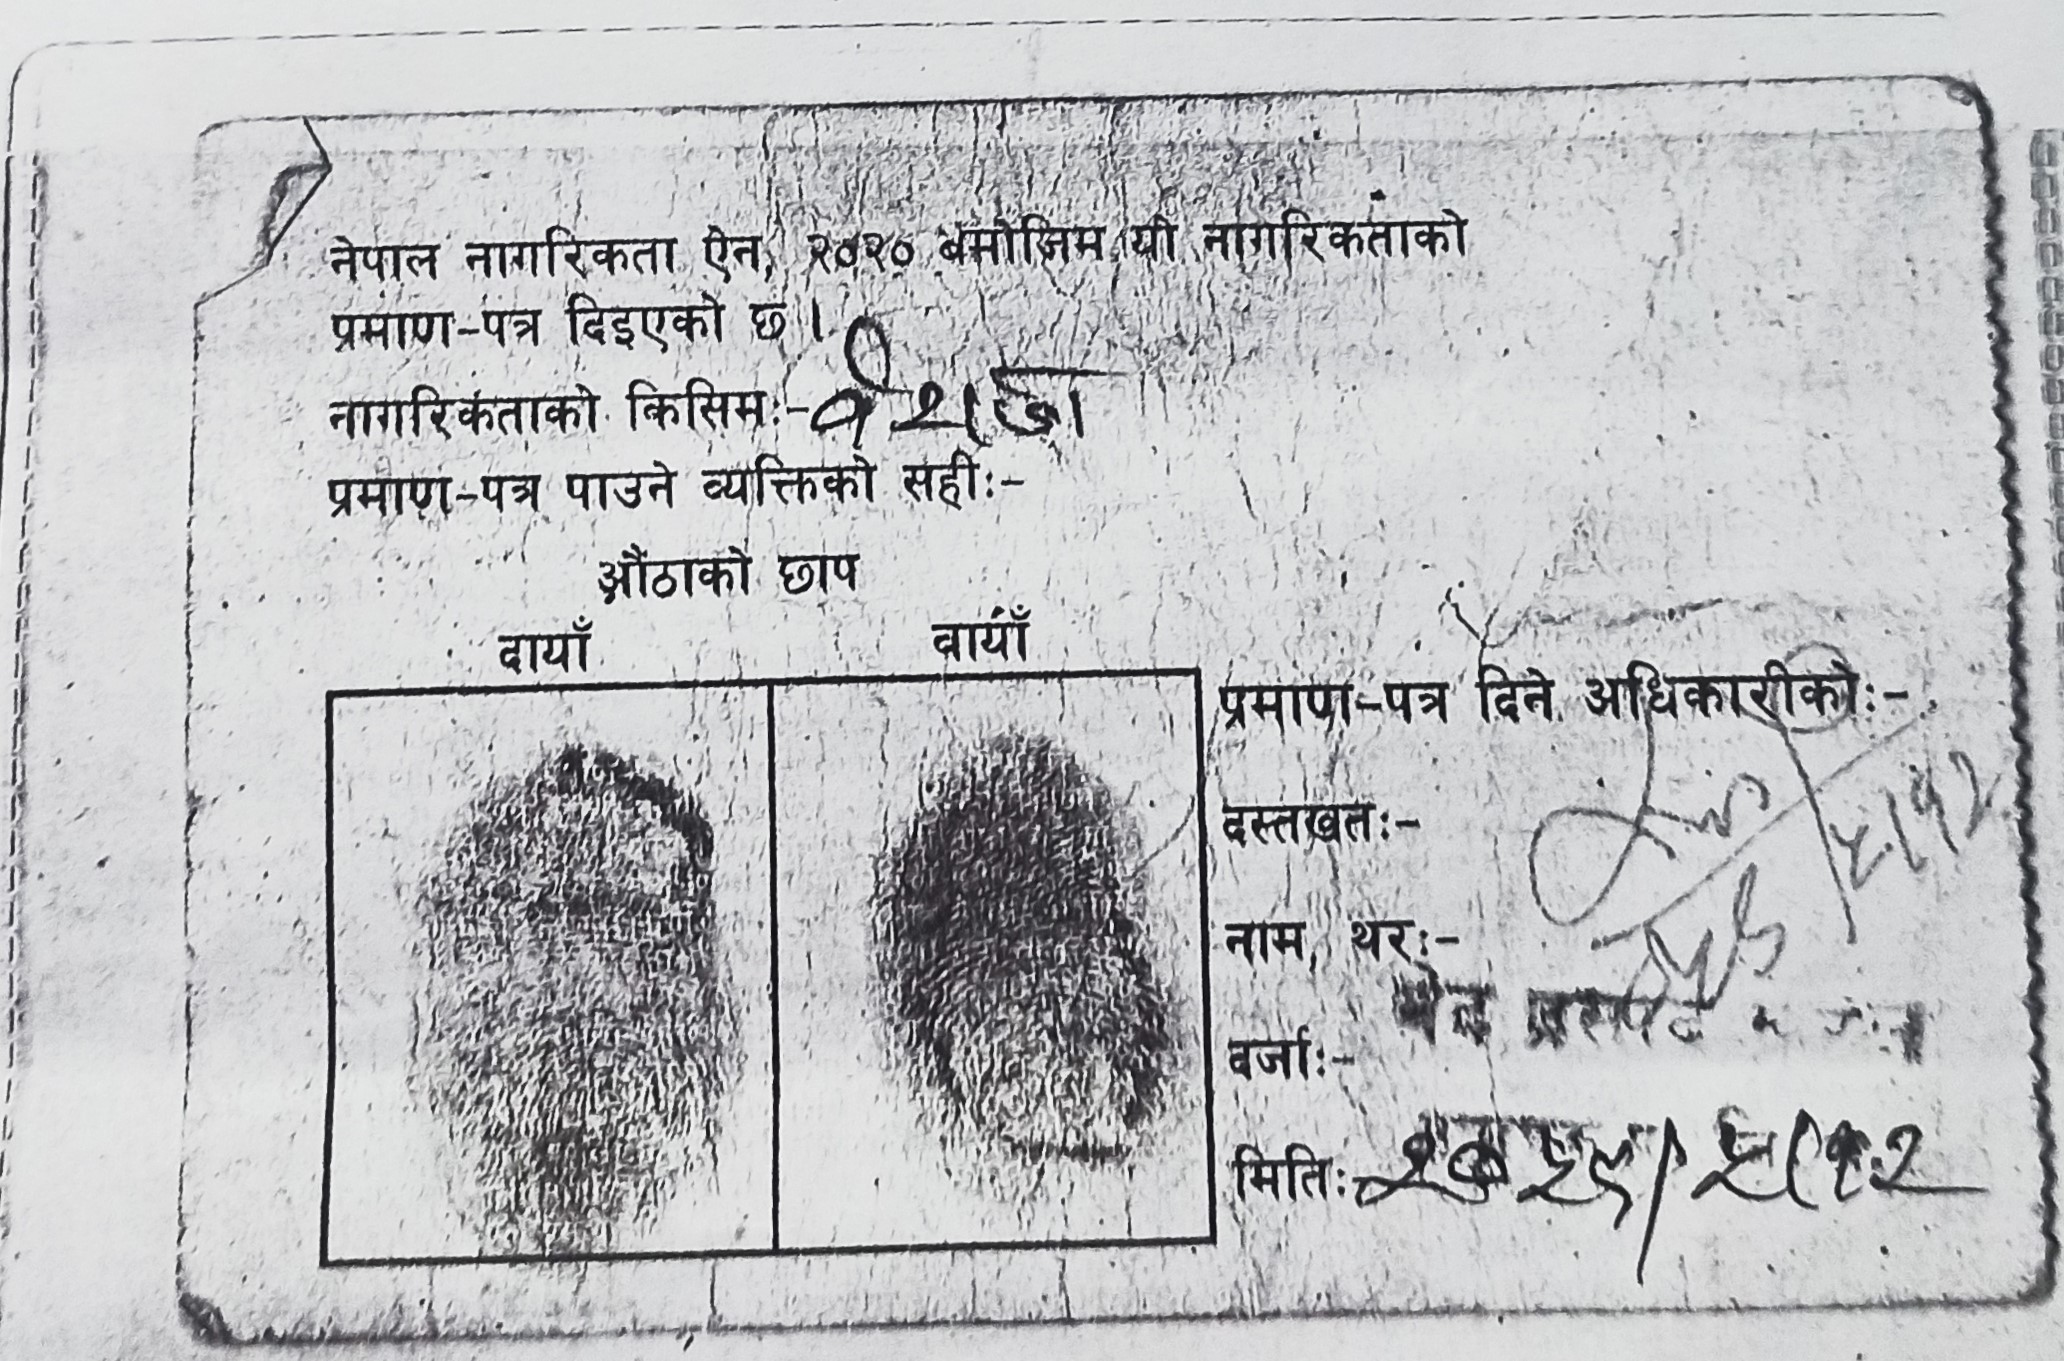 नेपाल नागरिकता ऐन, २०२० बमोजिम यो नागरिकताको
प्रमाण-पत्र दिइएको छ ।
नागरिकताको किसिमः- वंशज
प्रमाण-पत्र पाउने व्यक्तिको सहीः-
औंठाको छाप
दायाँ बायाँ
प्रमाण-पत्र दिने अधिकारीकोः-
दस्तखतः-
नाम, थरः-
प्रसाद
दर्जाः-
मितिः